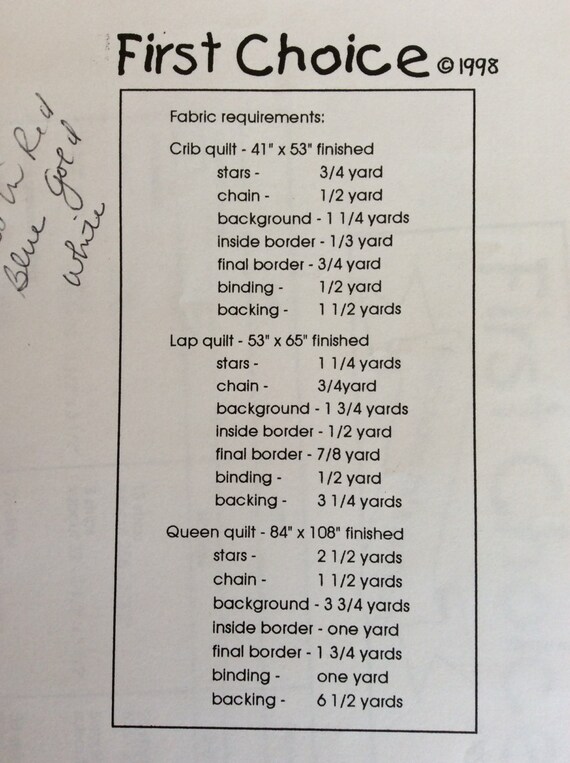 First Choice © 1998
in Red
Blue Gold
White
Fabric requirements:
Crib quilt - 41" x 53" finished
stars - 3/4 yard
chain - 1/2 yard
background - 1 1/4 yards
inside border - 1/3 yard
final border - 3/4 yard
binding - 1/2 yard
backing - 1 1/2 yards
Lap quilt - 53" x 65" finished
stars - 1 1/4 yards
chain - 3/4yard
background - 1 3/4 yards
inside border - 1/2 yard
final border - 7/8 yard
binding - 1/2 yard
backing - 3 1/4 yards
Queen quilt - 84" x 108" finished
stars - 2 1/2 yards
chain - 1 1/2 yards
background - 3 3/4 yards
inside border - one yard
final border - 1 3/4 yards
binding - one yard
backing - 6 1/2 yards